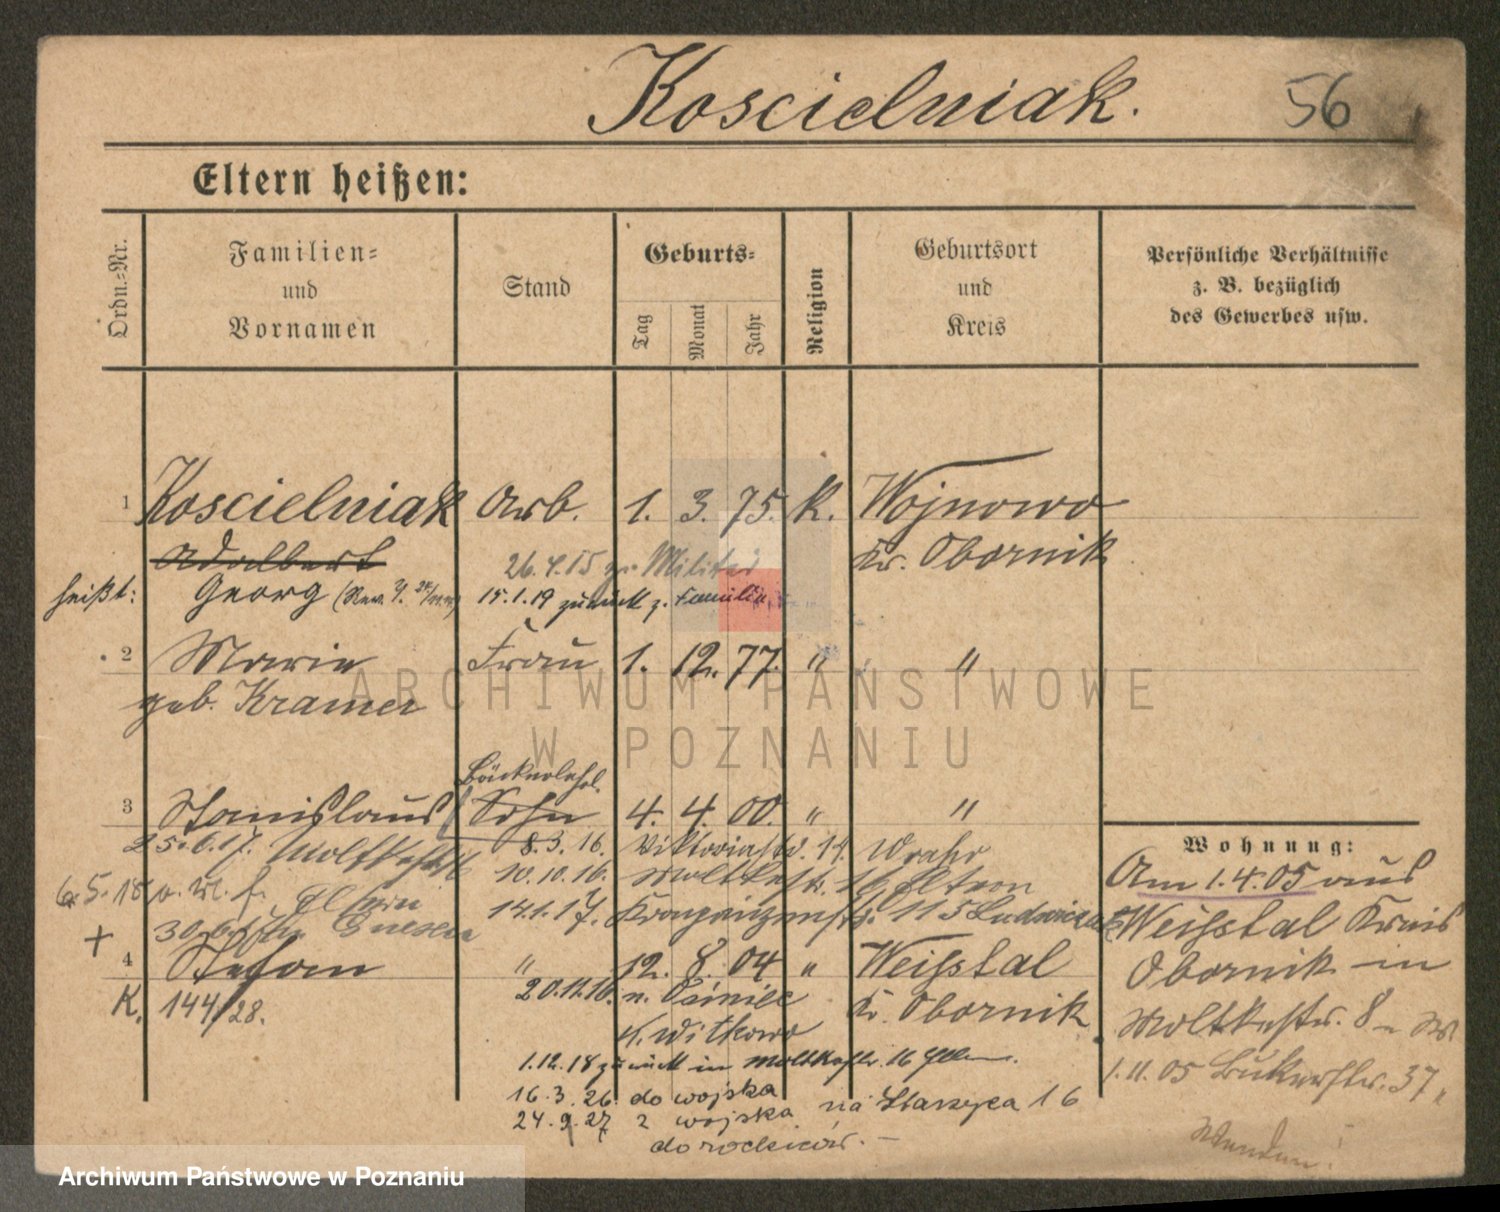 Koscielniak. 56
Eltern heißen:
Ordn.-Nr.
Familien-
und
Vornamen
Stand
Geburts-
Tag
Monat
Jahr
Religion
Geburtsort
und
Kreis
Persönliche Verhältnisse
z. B. bezüglich
des Gewerbes usw.
1 Koscielniak Arb. 1. 3. 75. K. Wojnowo
Adalbert Kr. Obornik
26. 4. 15 zu Militär
heißt: Georg 15.1.19 zurück z. Familie
2 Marie Frau 1. 12. 77. " "
geb. Kramer
Bäckerlehrl.
3 Stanislaus Sohn 4. 4. 00. " "
25.6.17. Moltkestr. 8.3.16. Viktoriastr. 14.
10.10.16. Moltkestr. 16 Eltern
6.5.18 14.1.17. Kronprinzenstr. 115
30.6. Gnesen
+
4 Stefan " 12. 8. 04 " Weißtal
Kr. Obornik
K. 144/28.
20.11.16. n.
K. Witkowo
1.12.18 zurück in Moltkestr. 16
16.3.26. do wojska
24.9.27 z wojska na Staszyca 16
do rodziców. —
Wohnung:
Am 1.4.05 aus
Weißtal Kreis
Obornik in
Moltkestr. 8
1.11.05 37
ARCHIWUM PAŃSTWOWE
W POZNANIU
Archiwum Państwowe w Poznaniu